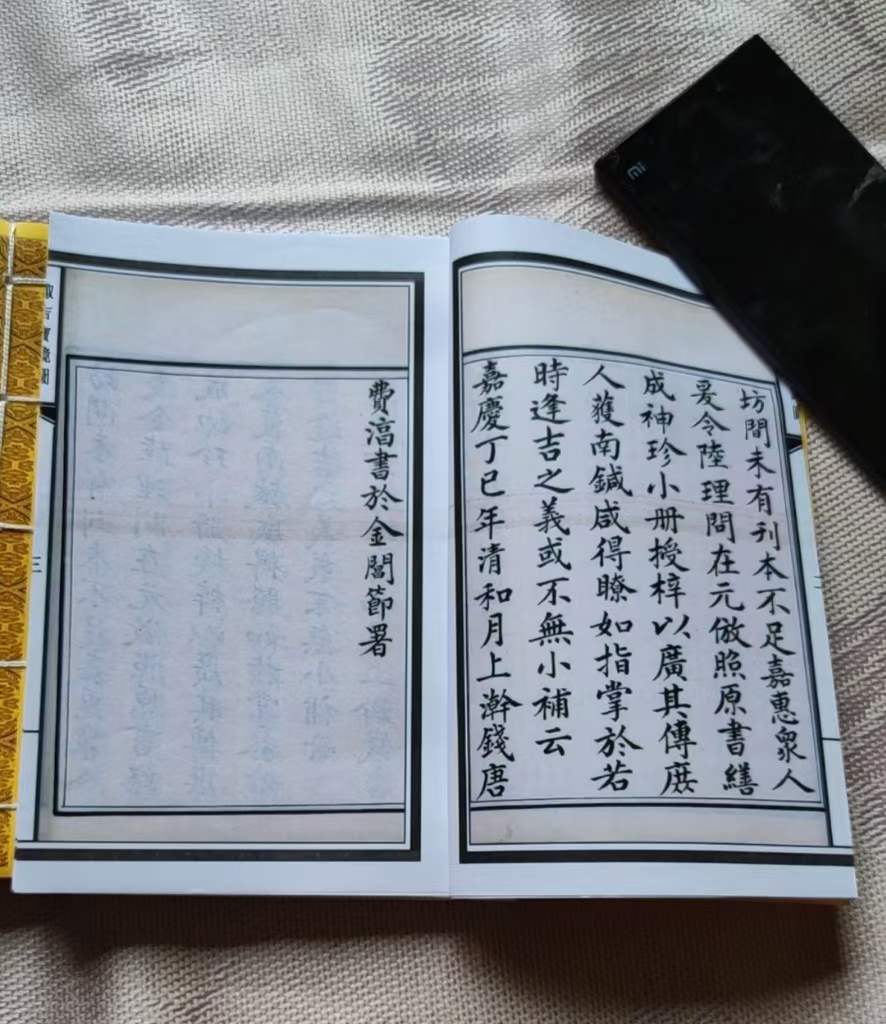 坊間未有刊本不足嘉惠衆人
爰令陸理問在元倣照原書繕
成神珍小册授梓以廣其傳庶
人獲南鍼咸得瞭如指掌於若
時逢吉之義或不無小補云
嘉慶丁巳年清和月上澣錢唐
費淳書於金閶節署
三
mi